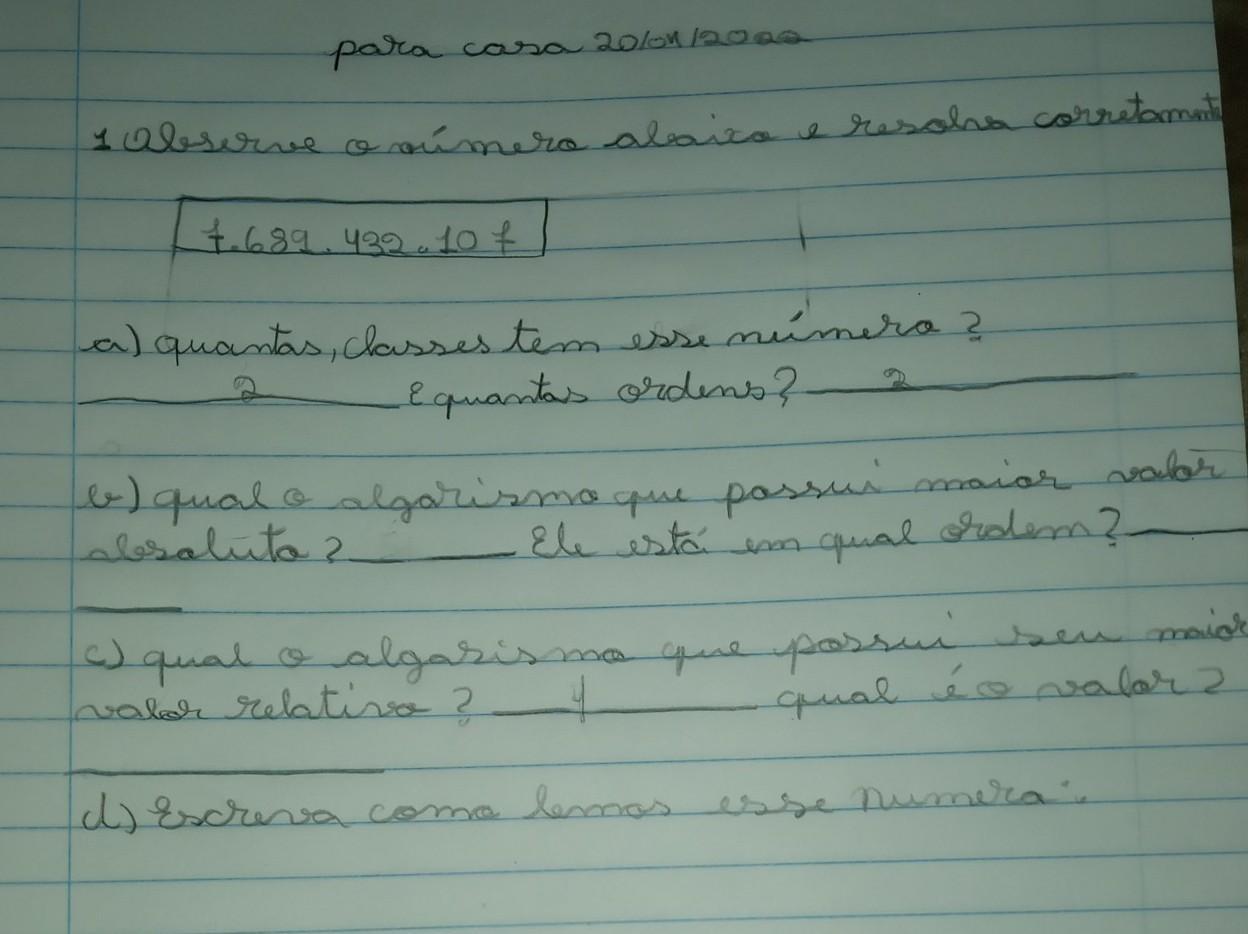 para casa 20/04/2022
1 Observe o número abaixo e resolva corretamente
7.689.432.107
a) quantas, classes tem esse número?
2 E quantas ordens? 2
b) qual o algarismo que possui maior valor
absoluto? Ele está em qual ordem?
c) qual o algarismo que possui seu maior
valor relativo? 7 qual é o valor?
d) Escreva como lemos esse numero:.